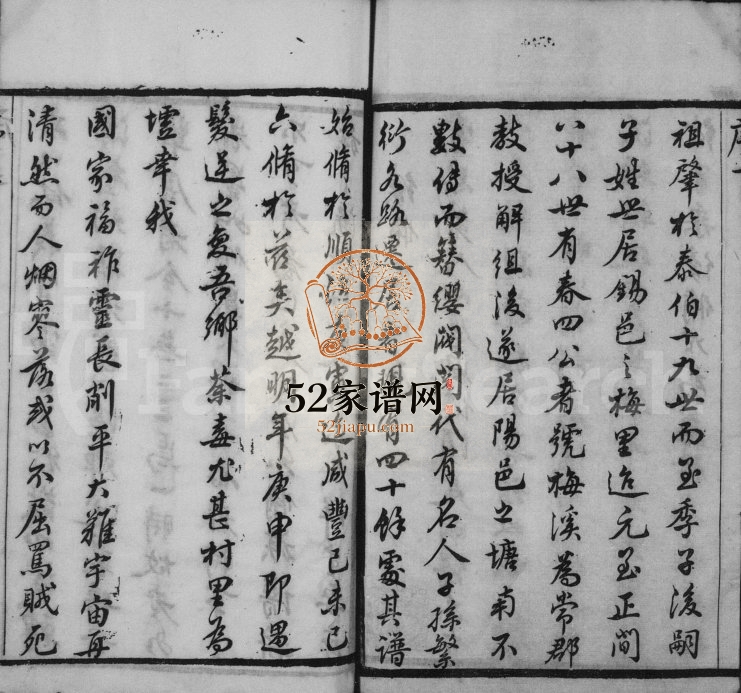 祖肇於泰伯十九世而至季子後嗣
子姓世居錫邑之梅里迨元至正間
八十八世有春四公者號梅溪為常郡
教授解組後遂居陽邑之塘南不
數傳而簪纓閥閱代有名人子孫繁
衍各路遷居者現有四十餘處其譜
始脩於順治迨咸豐己未已
六脩於茲矣越明年庚申即遇
髮逆之變吾鄉荼毒尤甚村里為
墟幸我
國家福祚靈長削平大難宇宙再
清然而人烟寥落或以不屈罵賊死
52家谱网
52jiapu.com